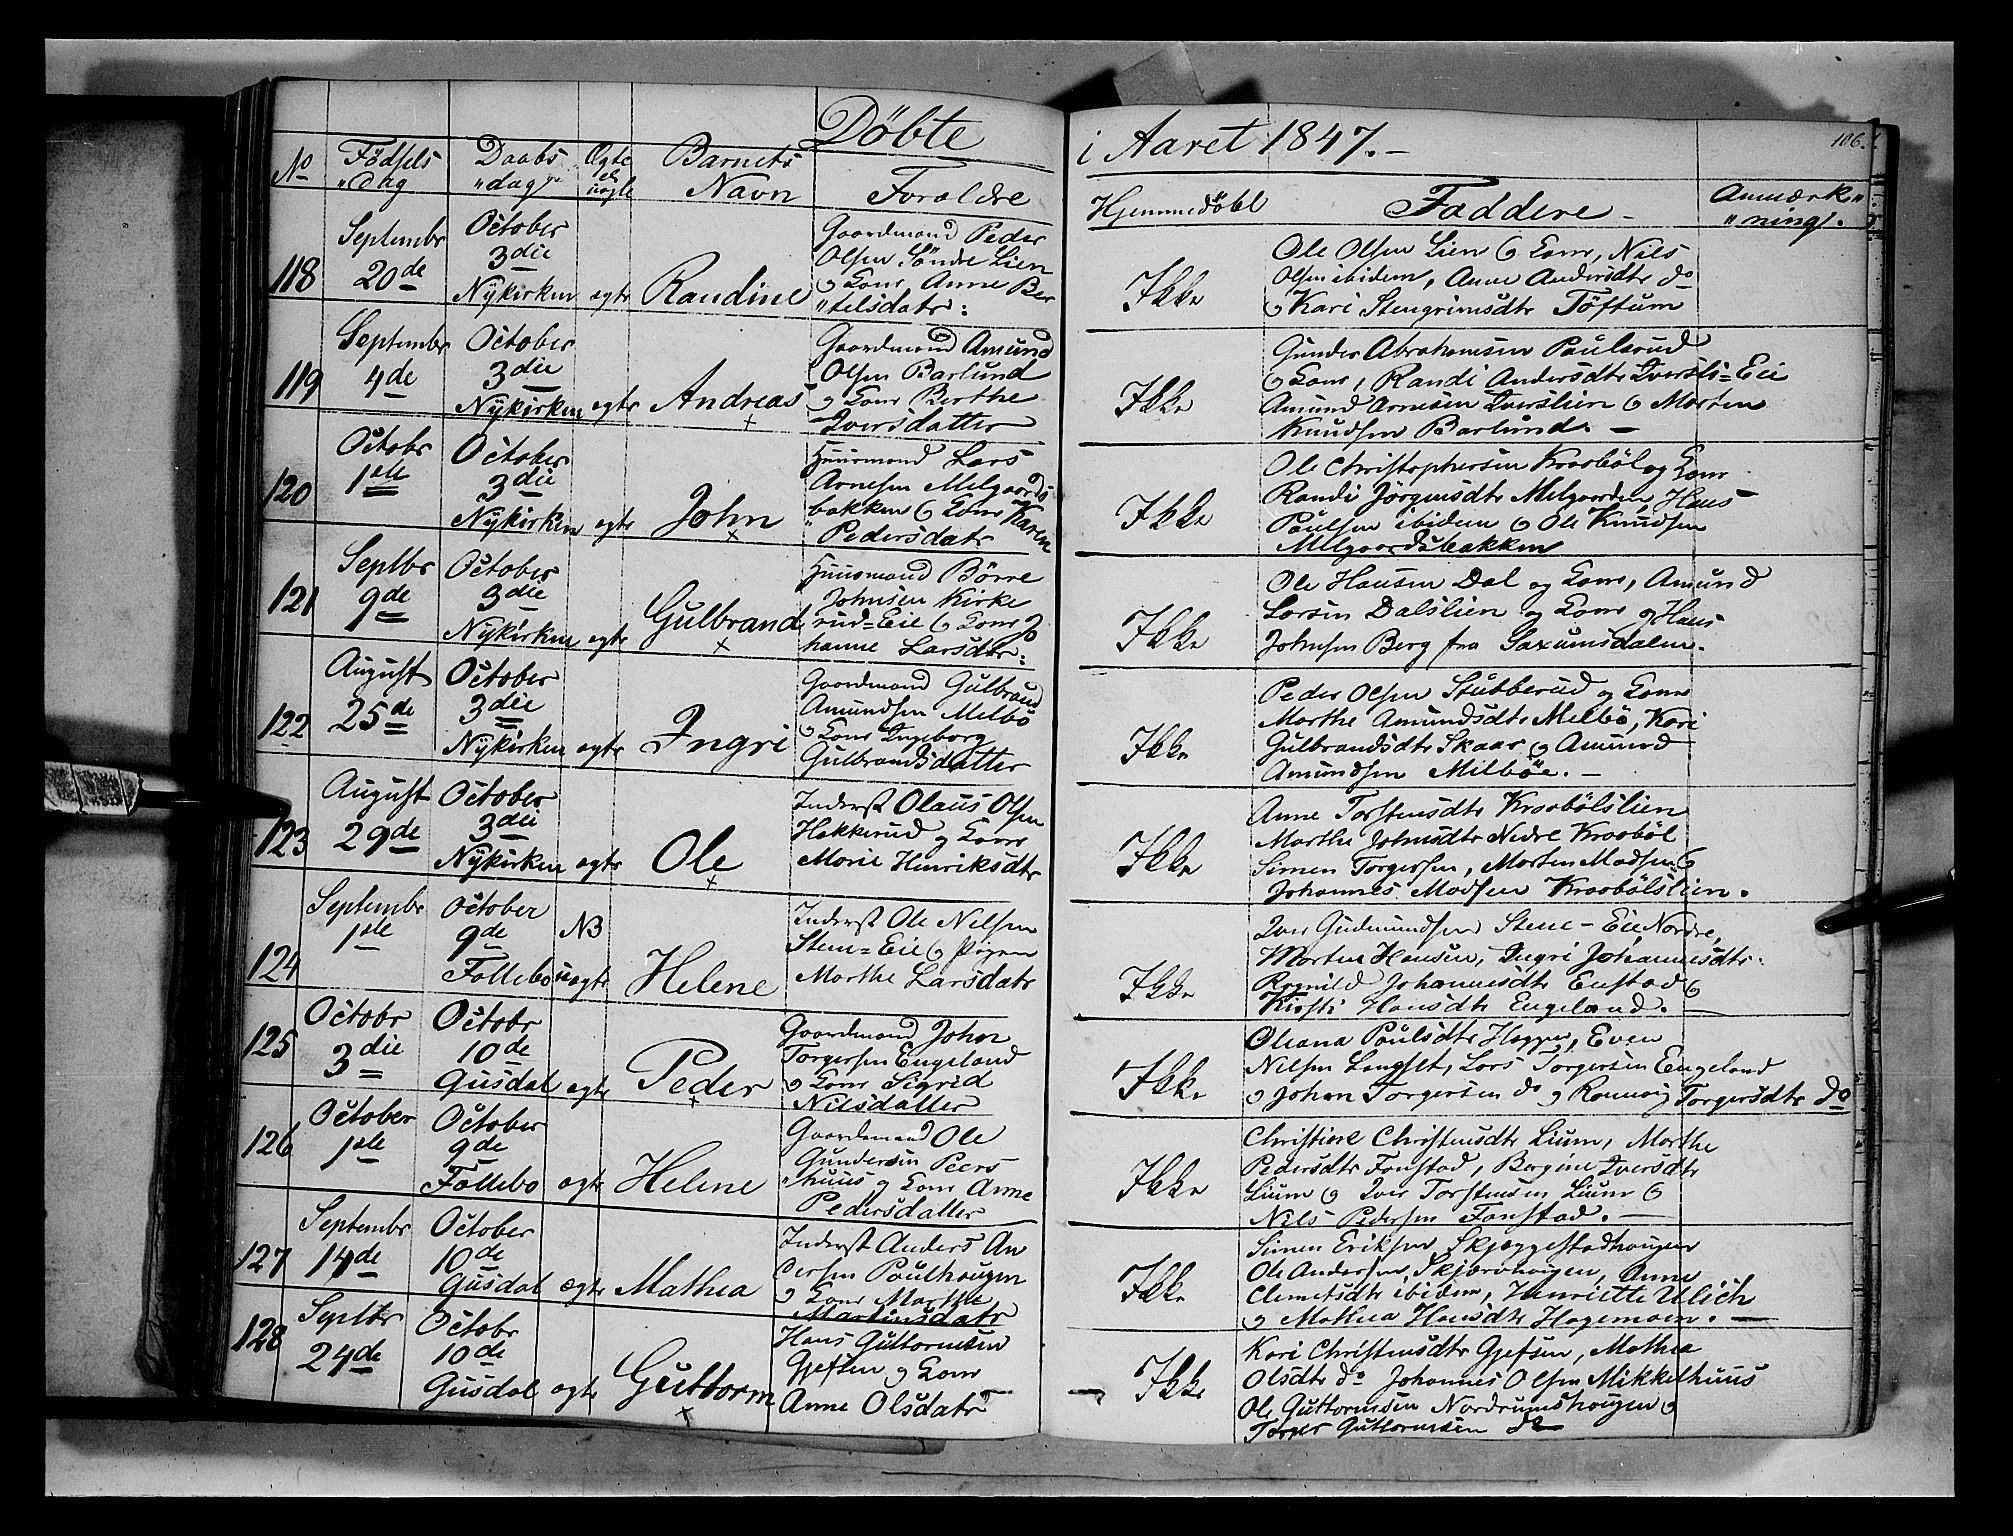 Döbte i Aaret 1847.-
106.
No Födsels dag Daabs dag Ægte el uægte Barnets Navn Forældre Hjemmedöbt Faddere Anmærkning.
118
Septembr 20de
October 3die Nykirken
ægte
Randine
Gaardmand Peder
Olsen Söndre Lien
og Kone, Anne Ber
"telsdatr:
Ikke
Ole Olsen Lien og Kone, Nils
Olsen ibidem, Anne Andersdtr do
og Kari Stengrimsdtr Töftum
119
Septembr 4de
October 3die Nykirken
ægte
Andreas
Gaardmand Amund
Olsen Barlund
og Kone Berthe
Iversdatter
Ikke
Gunder Abrahamsen Paulsrud
og Kone, Randi Andersdtr Iversli=Eie
Amund Arnesen Iverslien og Morten
Knudsen Barlund. -
120
Octobr 1ste
October 3die Nykirken
ægte
John
Huusmand Lars
Arnesen Melgaards
bakken og Kone Karen
Pedersdatr
Ikke
Ole Christophersen Kraaböl og Kone
Randi Jörgensdtr Melgaarden, Hans
Poulsen ibidem og Ole Knudsen
Melgaardsbakken
121
Septbr 9de
October 3die Nykirken
ægte
Gulbrand
Huusmand Börre
Johnsen Kirke
rud=Eie og Kone Jo
hanne Larsdtr:
Ikke
Ole Hansen Dal og Kone, Amund
Larsen Dalslien og Kone og Hans
Johnsen Berg fra Saxumsdalen.
122
August 25de
October 3die Nykirken
ægte
Ingri
Gaardmand Gulbrand
Amundsen Melbö
og Kone Ingeborg
Gulbrandsdatter
Ikke
Peder Olsen Stubberud og Kone
Marthe Amundsdtr Melbö, Kari
Gulbrandsdtr Skaar og Amund
Amundsen Milböe. -
123
August 29de
October 3die Nykirken
ægte
Ole
Inderst Olaus Olsen
Hakkerud og Kone
Marie Henriksdtr
Ikke
Anne Torstensdtr Kraabölslien
Marthe Johnsdtr Nedre Kraaböl
Simen Torgersen, Morten Madsen og
Johannes Madsen Kraabölslien.
124
Septembr 1ste
October 9de Follebo
NB uægte
Helene
Inderst Ole Nilsen
Stene=Eie og Pigen
Marthe Larsdatr
Ikke
Iver Gudmundsen Stene-Eie, Nordre,
Morten Hansen, Ingri Johannesdtr
Ragnild Johannesdtr Enstad og
Kirsti Hansdtr Engeland. -
125
Octobr 3die
Octobr 10de Gusdal
ægte
Peder
Gaardmand Johan
Torgersen Engeland
og Kone Sigrid
Nilsdatter
Ikke
Oleana Paulsdtr Hagger, Even
Nilsen Langset, Lars Torgersen Engeland
og Johan Torgersen do og Rønnoug Torgersdtr do
126
October 1ste
October 9de Follebo
ægte
Helene
Gaardmand Ole
Gundersen Peers
"huus og Kone Anne
Pedersdatter
Ikke
Christine Christensdtr Lium, Marthe
Pedersdtr Fonstad, Bergine Iversdtr
Lium og Iver Torstensen Lium og
Nils Pedersen Fonstad. -
127
Septembr 14de
October 10de Gusdal
ægte
Mathea
Inderst Anders An
dersen Poulhougen
og Kone Marthe
Martinusdatr
Ikke
Simen Eriksen Skjeggestadhougen
Ole Andersen Skjærvhougen, Anne
Clemetsdtr ibidem, Henriette Ulich
og Mathea Hansdtr Hagemoen. -
128
Septbr 24de
Octobr 10de Gusdal
ægte
Guttorm
Hans Guttormsen
Gjefsen og Kone
Anne Olsdatr
Ikke
Kari Christensdtr Gjefsen, Mathea
Olsdtr do Johannes Olsen Mikkelhuus
Ole Guttormsen Nordrumshougen og
Torger Guttormsen do